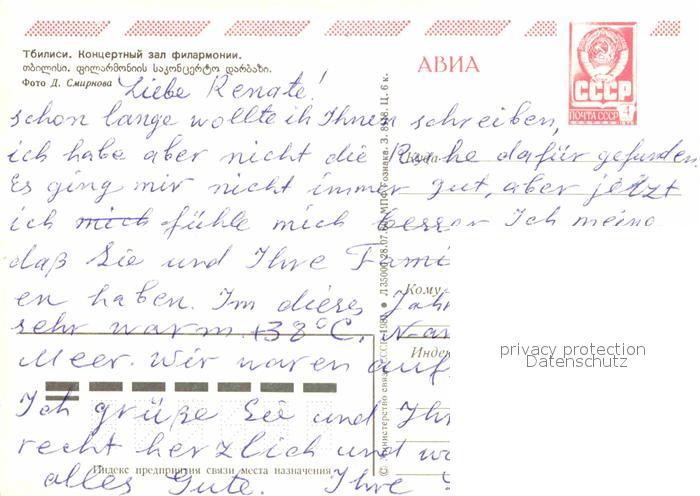 Тбилиси. Концертный зал филармонии.
თბილისი. ფილარმონიის საკონცერტო დარბაზი.
Фото Д. Смирнова
АВИА
СССР
ПОЧТА СССР
4
Liebe Renate!
schon lange wollte ich Ihnen schreiben,
ich habe aber nicht die Ruhe dafür gefunden.
Es ging mir nicht immer gut, aber jetzt
ich mich fühle mich besser Ich meine
daß Sie und Ihre Fami
en haben. Im dieses Jahr
sehr warm +38°C,
Meer. Wir waren auf
Ich grüße Sie und Ihr
recht herzlich und
alles Gute. Ihre
Куда
Кому
Индекс
Индекс предприятия связи места назначения
© Министерство связи СССР. 1981
Л 35000 28.07. МПФ Гознака. З. Ц. 6 к.
privacy protection
Datenschutz